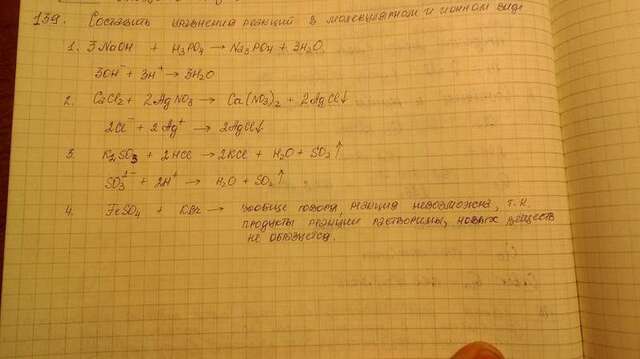 139. Составить уравнения реакций в молекулярном и ионном виде
1. 3NaOH + H₃PO₄ → Na₃PO₄ + 3H₂O
3OH⁻ + 3H⁺ → 3H₂O
2. CaCl₂ + 2AgNO₃ → Ca(NO₃)₂ + 2AgCl↓
2Cl⁻ + 2Ag⁺ → 2AgCl↓
3. K₂SO₃ + 2HCl → 2KCl + H₂O + SO₂↑
SO₃²⁻ + 2H⁺ → H₂O + SO₂↑
4. FeSO₄ + KBr → вообще говоря, реакция невозможна, т.к.
продукты реакции растворимы, новых веществ
не образуется.